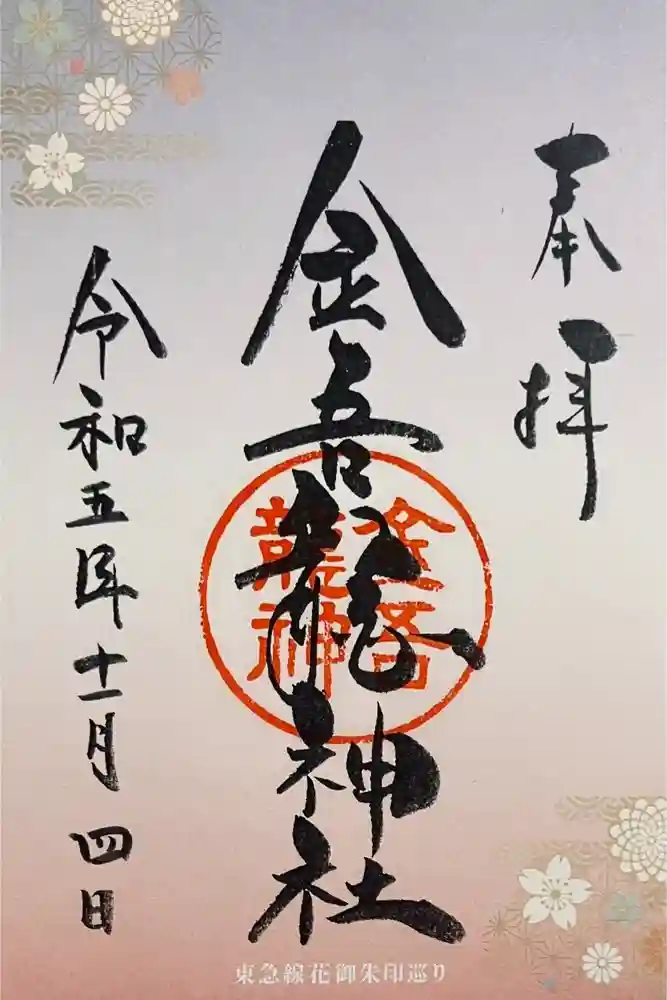 奉拝
金吾龍神社
金吾
龍神
令和五年十一月四日
東急線花御朱印巡り